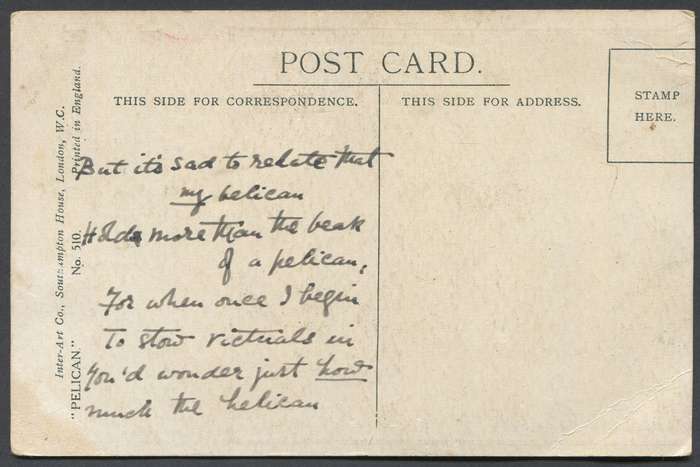 POST CARD.
THIS SIDE FOR CORRESPONDENCE.
THIS SIDE FOR ADDRESS.
STAMP
HERE.
Inter-Art Co., Southampton House, London, W.C.
"PELICAN." No. 510. Printed in England.
But it's sad to relate that
my belican
Holds more than the beak
of a pelican,
For when once I begin
To stow victuals in
You'd wonder just how
much the helican